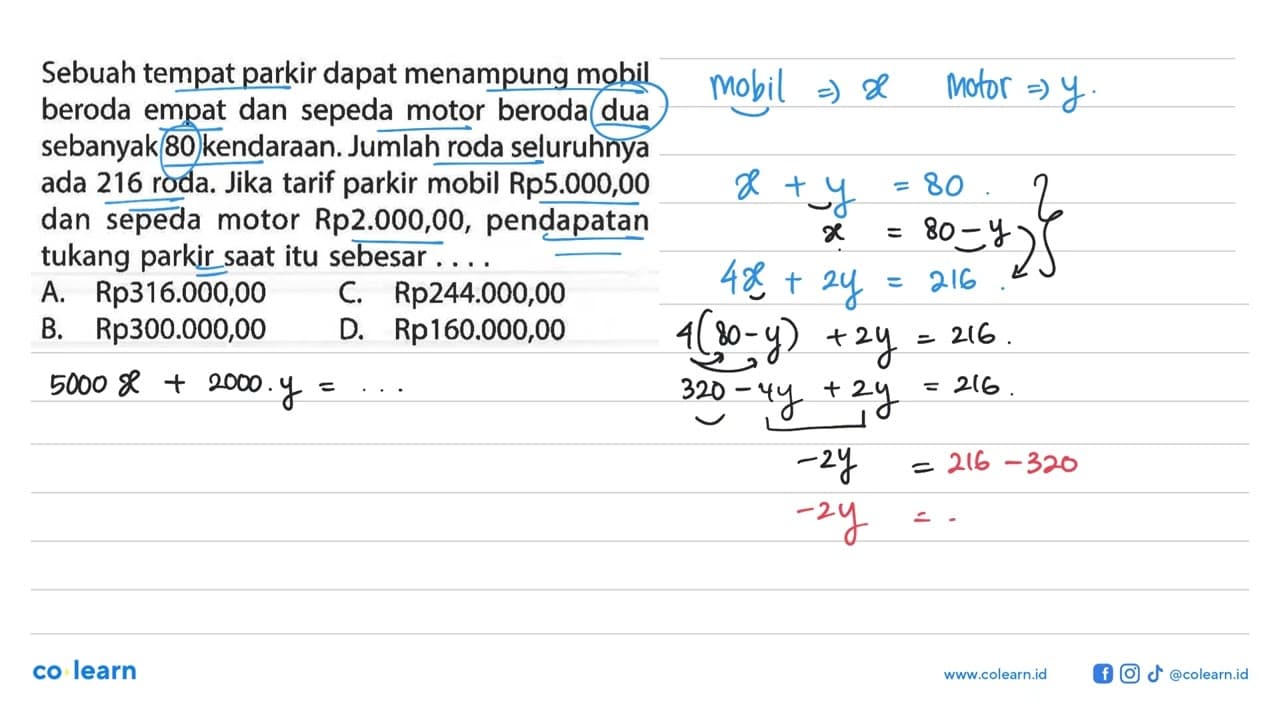 Sebuah tempat parkir dapat menampung mobil
beroda empat dan sepeda motor beroda dua
sebanyak 80 kendaraan. Jumlah roda seluruhnya
ada 216 roda. Jika tarif parkir mobil Rp5.000,00
dan sepeda motor Rp2.000,00, pendapatan
tukang parkir saat itu sebesar . . . .
A. Rp316.000,00 C. Rp244.000,00
B. Rp300.000,00 D. Rp160.000,00
5000 x + 2000 . y = . . .
mobil => x motor => y .
x + y = 80 .
x = 80 - y
4x + 2y = 216 .
4(80 - y) + 2y = 216 .
320 - 4y + 2y = 216 .
-2y = 216 - 320
-2y = -
co learn
www.colearn.id @colearn.id